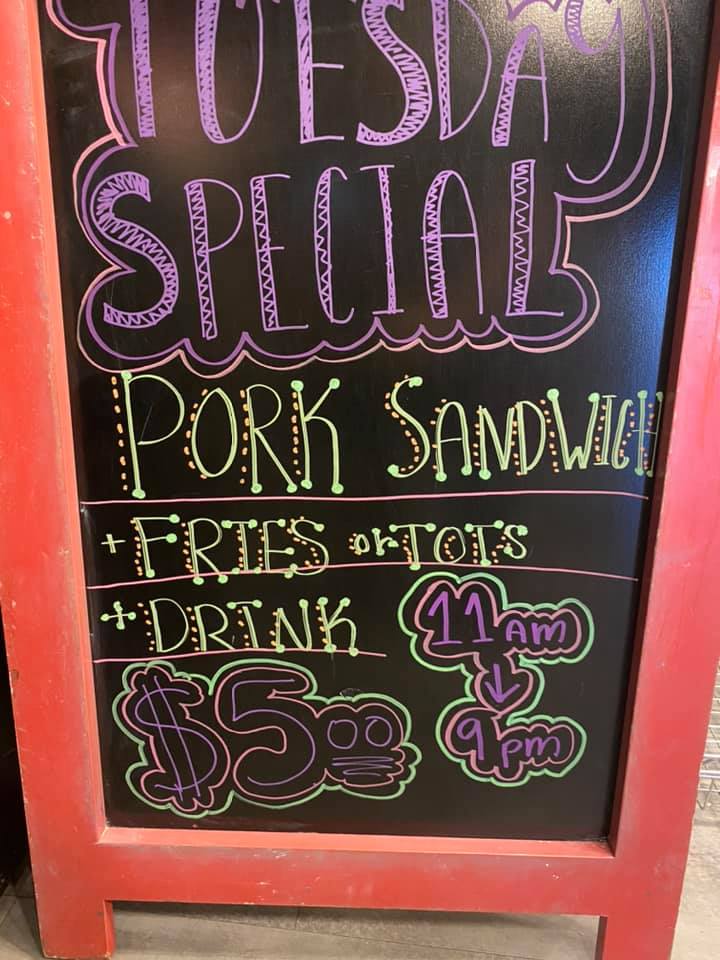 TUESDAY
SPECIAL
PORK SANDWICH
+ FRIES or TOTS
+ DRINK
11 AM
↓
9 pm
$5.00